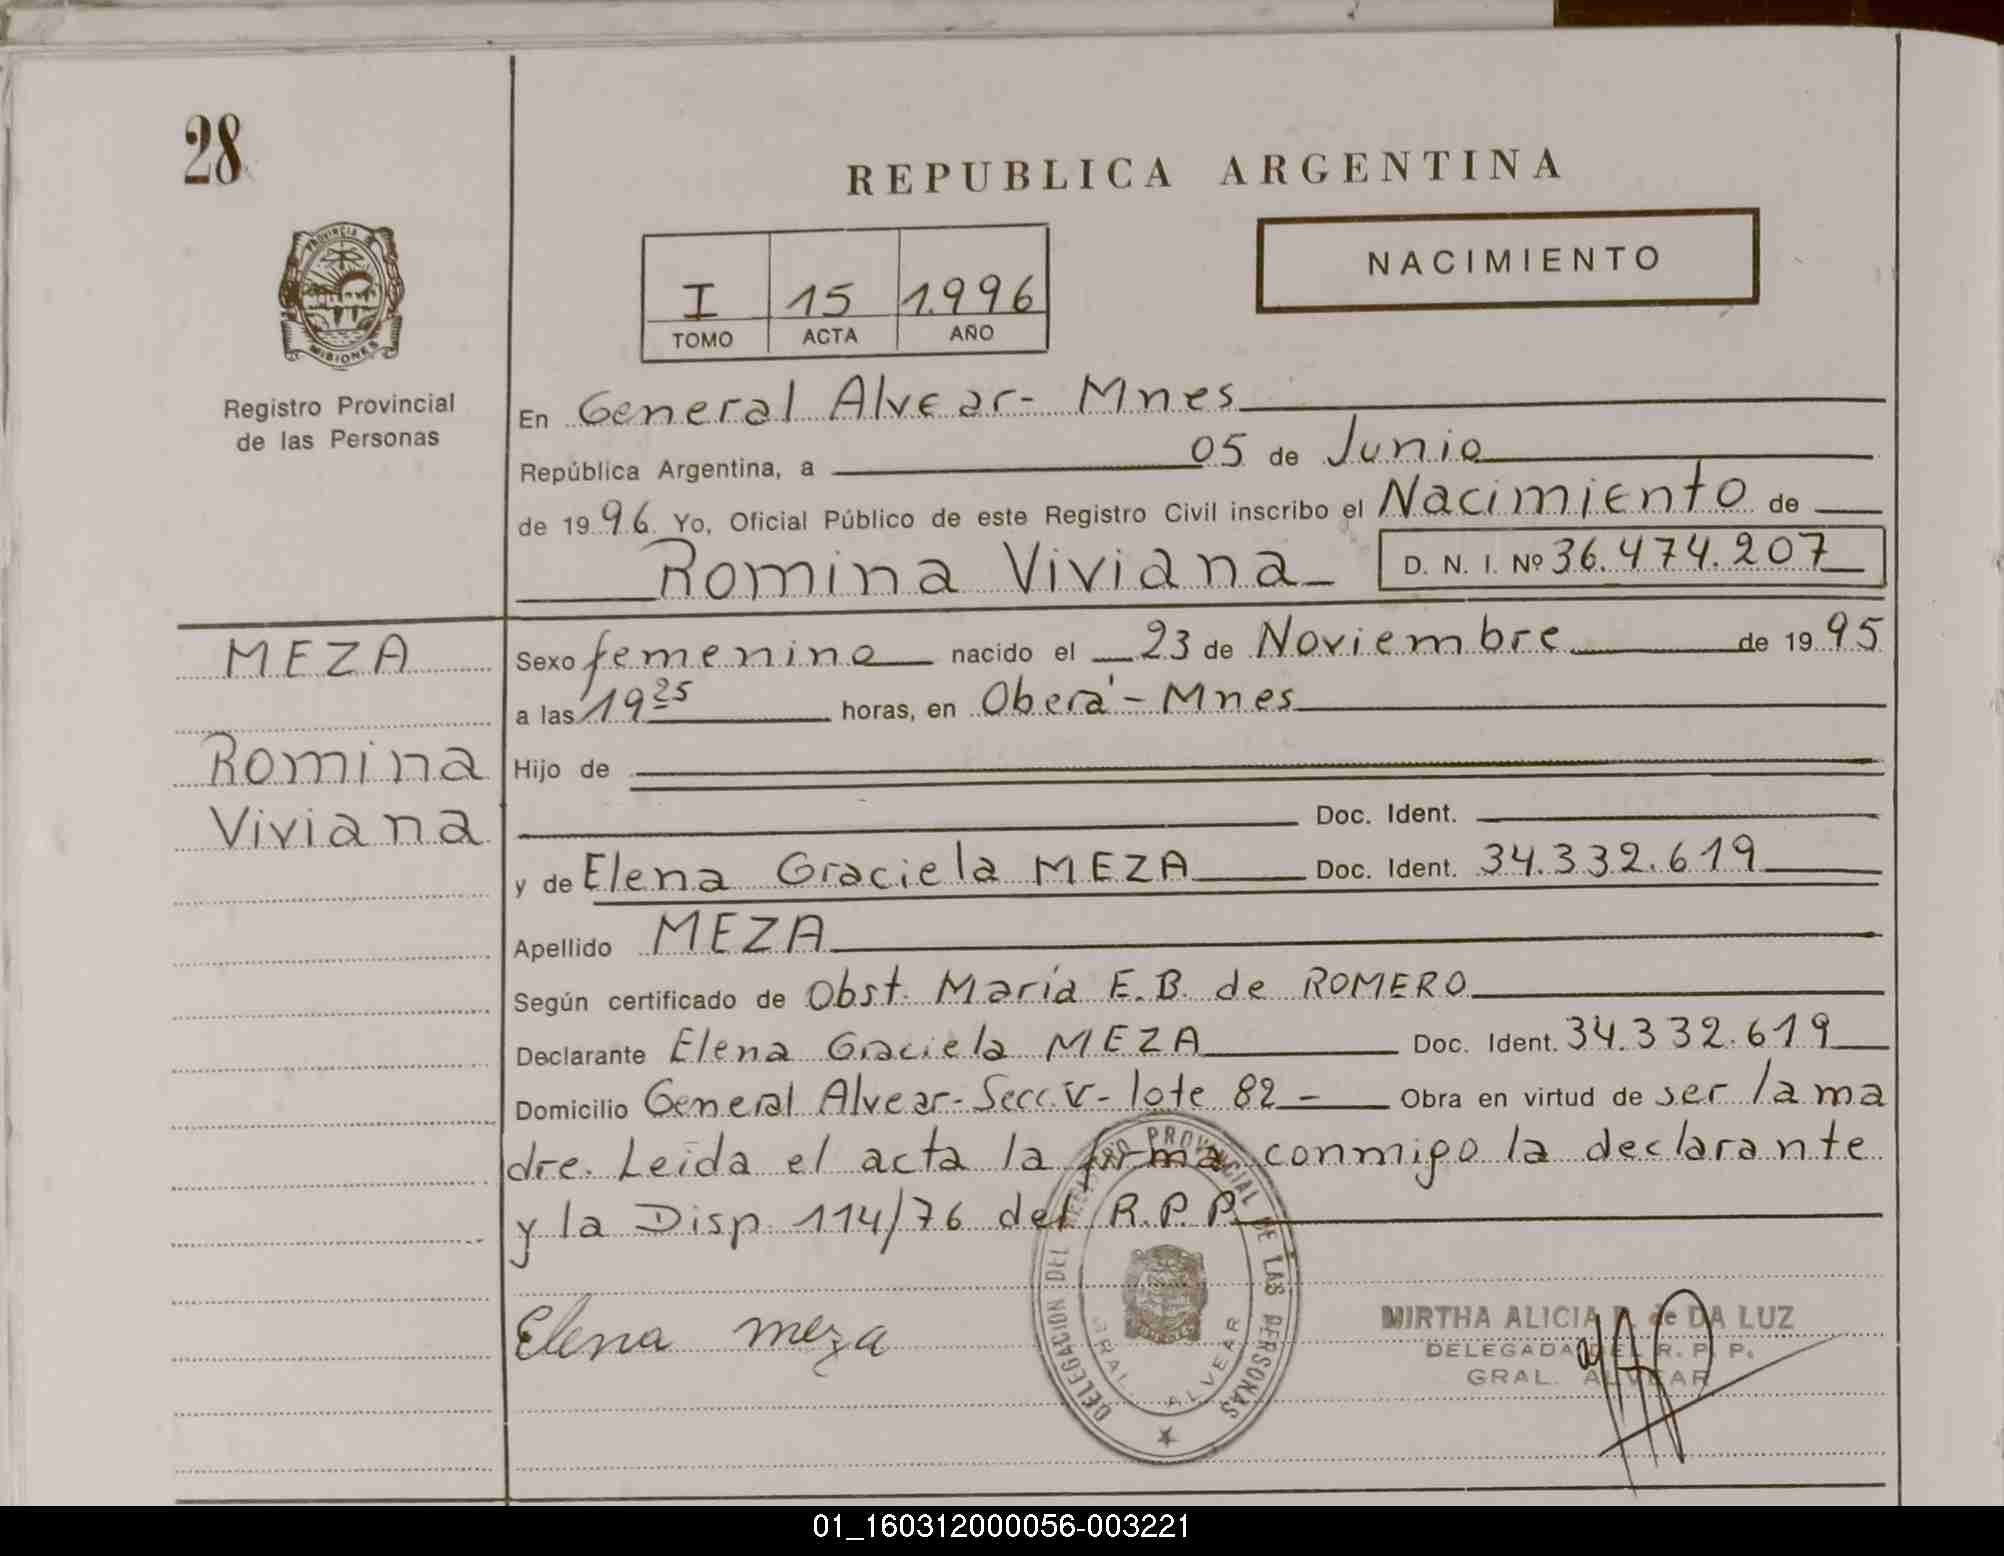 28
REPUBLICA ARGENTINA
PROVINCIA DE
MISIONES
Registro Provincial
de las Personas
I 15 1.996
TOMO ACTA AÑO
NACIMIENTO
En General Alvear- Mnes
República Argentina, a 05 de Junio
de 19 96 Yo, Oficial Público de este Registro Civil inscribo el Nacimiento de
Romina Viviana D. N. I. Nº 36.474.207
MEZA
Romina
Viviana
Sexo femenino nacido el 23 de Noviembre de 19 95
a las 19 25 horas, en Oberá - Mnes
Hijo de
Doc. Ident.
y de Elena Graciela MEZA Doc. Ident. 34.332.619
Apellido MEZA
Según certificado de Obst. María E.B. de ROMERO
Declarante Elena Graciela MEZA Doc. Ident. 34.332.619
Domicilio General Alvear- Secc. V - lote 82 - Obra en virtud de ser la ma
dre. Leída el acta la firma conmigo la declarante
y la Disp. 114/76 del R.P.P.
Elena meza
DELEGACION DEL REGISTRO PROVINCIAL DE LAS PERSONAS
GRAL. ALVEAR
MIRTHA ALICIA de DA LUZ
DELEGADA DEL R. P. P.
GRAL. ALVEAR
01_160312000056-003221